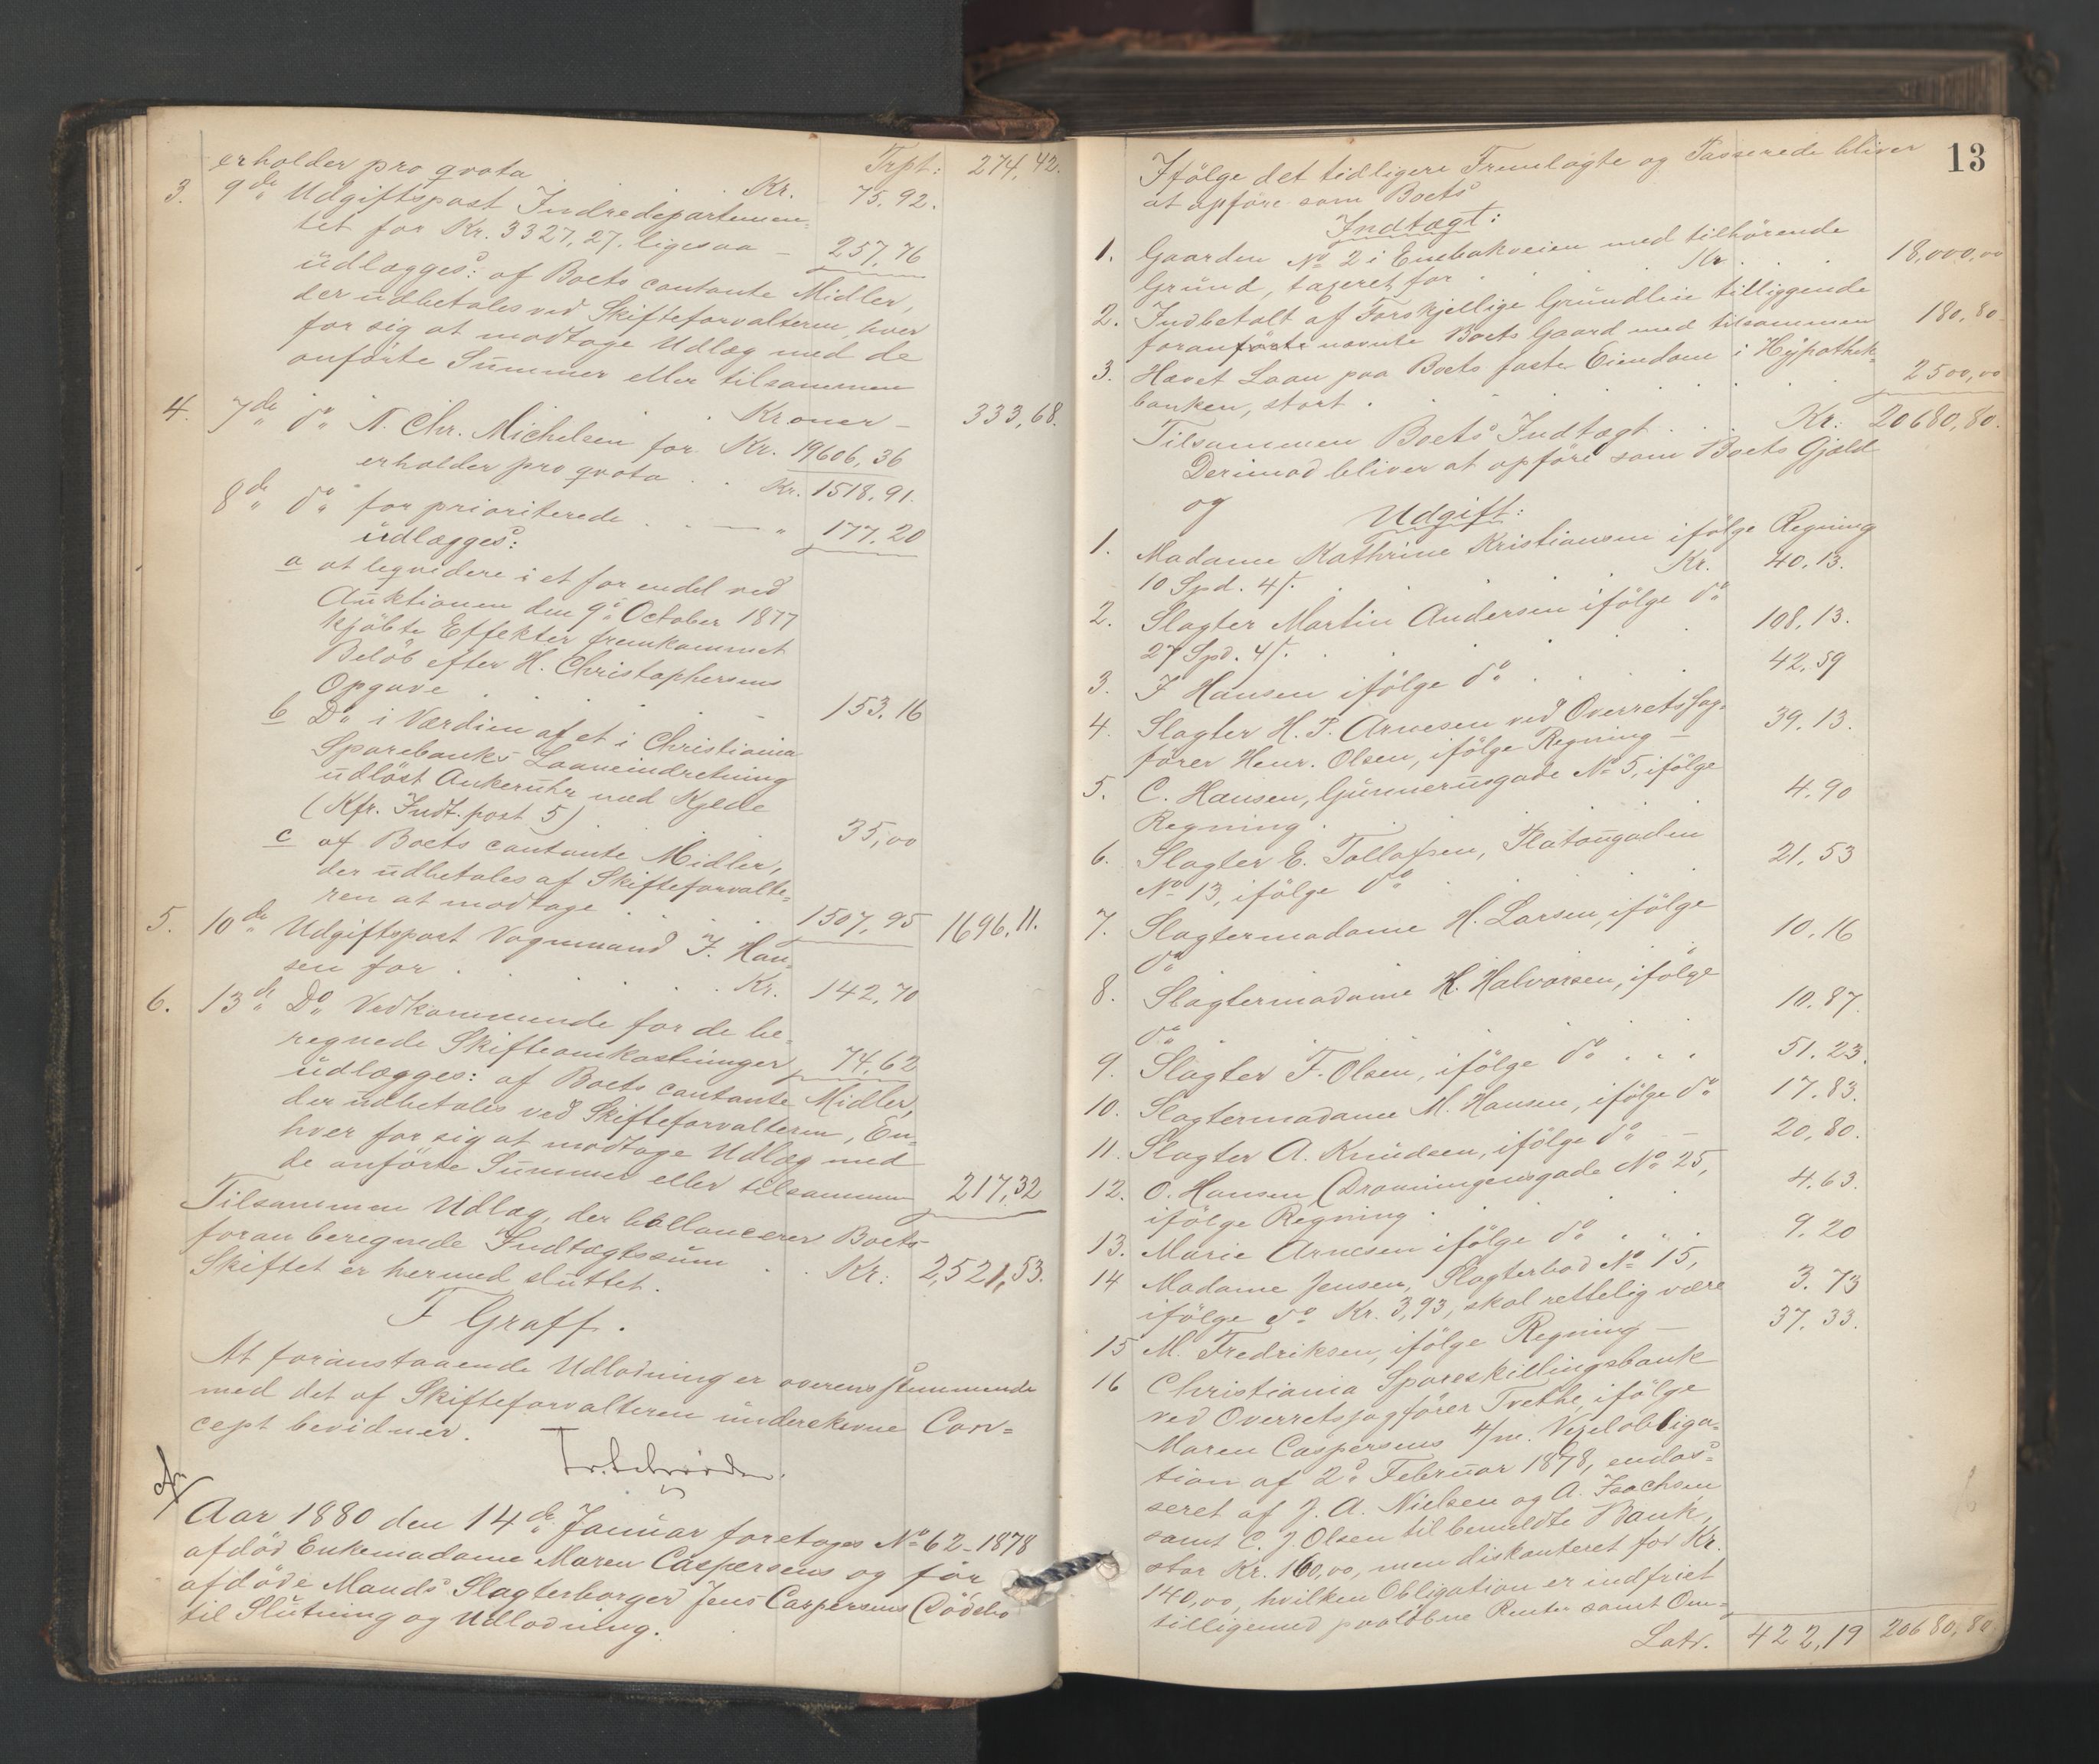 erholder pro qvota Trpt: 274,42.
3. 9de Udgiftspost Indredepartemen= Kr. 75,92.
tet for Kr. 3327,27. ligesaa — 257,76
udlægges: af Boets contante Midler,
der udbetales ved Skifteforvalteren, hver
for sig at modtage Udlæg med de
anførte Summer eller tilsammen
Kroner — 333,68.
4. 7de do N. Chr. Michelsen for Kr. 19606,36
erholder pro qvota . . Kr. 1518,91.
8de do for prioriterede . . — " 177,20
udlægges:
a at leqvidere i et for endel ved
Auktionen den 9de October 1877
kjøbte Effekter fremkommet
Beløb efter H. Christophersens
Opgave . . — 153,16
b Do i Værdien af et i Christiania
Sparebanks Laaneindretning
udløst Ankeruhr med Kjede
(Kfr. Indt. post 5) . . 35,00
c af Boets contante Midler,
der udbetales af Skifteforvalte=
ren at modtage . . 1507,95 1696,11.
5. 10de Udgiftspost Vognmand F. Han=
sen for . . . . . Kr. 142,70
6. 13de Do Vedkommende for de be=
regnede Skifteomkostninger 74,62
udlægges: af Boets contante Midler,
der udbetales ved Skifteforvalteren, En=
hver for sig at modtage Udlæg med
de anførte Summer eller tilsammen 217,32
Tilsammen Udlæg, der ballancerer Boets
foran beregnede Indtægtssum . . Kr: 2,521,53.
Skiftet er hermed sluttet.
F Graff.
At foranstaaende Udlodning er overensstemmende
med det af Skifteforvalteren underskrevne Con=
cept bevidner.
Aar 1880 den 14de Januar foretages No 62-1878
afdød Enkemadame Maren Caspersens og før
afdøde Mands Slagterborger Jens Caspersens Dødsbo
til Slutning og Udlodning.
13
Ifølge det tidligere Fremlagte og Passerede bliver
at opføre som Boets
Indtægt:
1. Gaarden No 2 i Enebakveien med tilhørende
Grund, taxeret for . Kr . . . 18,000,00
2. Indbetalt af Forskjellige Grundleie tilliggende
foranførte nævnte Boets Gaard med tilsammen 180,80
3. Hævet Laan paa Boets faste Eiendom i Hypothek=
banken, stort . . . . . 2500,00
Tilsammen Boets Indtægt . . . Kr: 20680,80.
Derimod bliver at opføre som Boets Gjæld
og
Udgift:
1. Madame Kathrine Kristiansen ifølge Regning
10 Spd. 4 ſ. . . . Kr. 40.13.
2. Slagter Martin Andersen ifølge do
27 Spd. 4 ſ. . . . . 108.13.
3. F Hansen ifølge do . . . 42.59
4. Slagter H. P. Arnesen ved Overretssag=
fører Henr. Olsen, ifølge Regning — 39.13.
5. C. Hansen, Gunnerusgade No 5, ifølge
Regning . . . . . 4.90
6. Slagter E. Tollofsen, Platougaden
No 13, ifølge do . . . 21.53
7. Slagtermadame H. Larsen, ifølge
do . . . . . 10.16
8. Slagtermadame H. Halvorsen, ifølge
do . . . . . 10.87.
9. Slagter F. Olsen, ifølge do . . . 51.23.
10. Slagtermadame M. Hansen, ifølge do 17.83.
11. Slagter A. Knudsen, ifølge do — 20,80.
12. O. Hansen (Dronningensgade No 25,
ifølge Regning . . . . 4.63.
13. Marie Arnesen ifølge do . . . 9.20
14 Madame Jensen, Slagterbod No 15,
ifølge do Kr. 3,93, skal rettelig være 3.73
15 M. Fredriksen, ifølge Regning — 37.33.
16 Christiania Spareskillingsbank
ved Overretssagfører Trethe, ifølge
Maren Caspersens 4/m. Vexelobliga=
tion af 2de Februar 1878, endos=
seret af J. A. Nielsen og A. Isachsen
samt C. J. Olsen til bemeldte Bank,
stor Kr. 160,00, men diskonteret for Kr.
140,00, hvilken Obligation er indfriet
tilligemed paaløbne Renter samt Om=
Latr. 422,19 20680,80